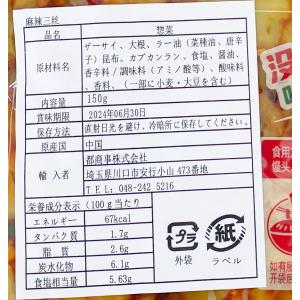 麻辣三丝
品名 惣菜
原材料名 ザーサイ、大根、ラー油(菜種油、唐辛
子)昆布、カブカンラン、食塩、醤油、
香辛料/調味料(アミノ酸等)、酸味料
、香料、(一部に小麦・大豆を含む)
内容量 150g
賞味期限 2024年06月30日
保存方法 直射日光を避け、冷暗所に保存してください。
原産国 中国
輸入者 都商事株式会社
埼玉県川口市安行小山473番地
TEL: 048-242 5216
栄養成分表示(100g当たり)
エネルギー 67kcal
タンパク質 1.7g
脂質 2.6g
炭水化物 6.1g
食塩相当量 5.63g
プラ
外袋
紙
ラベル
食用方
馒头、
如有胀
开袋后